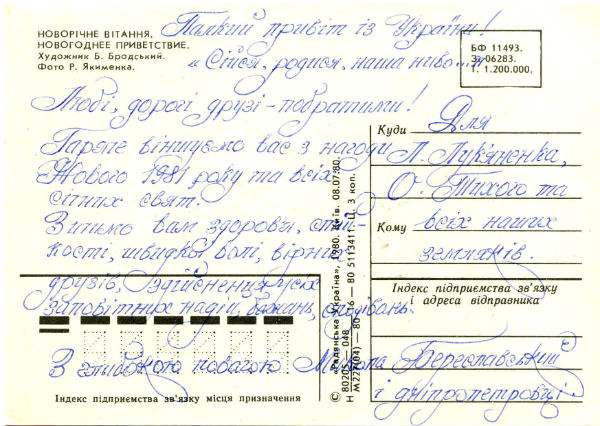 НОВОРІЧНЕ ВІТАННЯ.
НОВОГОДНЕЕ ПРИВЕТСТВИЕ.
Художник Б. Бродський.
Фото Р. Якименка.
Палкий привіт із України!
„Сійся, родися, наша ниво...“
БФ 11493.
З. 06283.
Т. 1.200.000.
Любі, дорогі друзі-побратими!
Гаряче віншуємо вас з нагоди
Нового 1981 року та всіх
січních свят.
Зичимо вам здоров'я, стій-
кості, швидкої волі, вірних
друзів, здійснення усіх
заповітних надій, бажань, сподівань.
З глибокою повагою Микола Береславський
і дніпропетровці.
Куди Для
Л. Лук'яненка,
О. Тихого та
Кому всіх наших
земляків.
Індекс підприємства зв'язку
і адреса відправника
Індекс підприємства зв'язку місця призначення
© «Радянська Україна», 1980. Київ. 08.07.80.